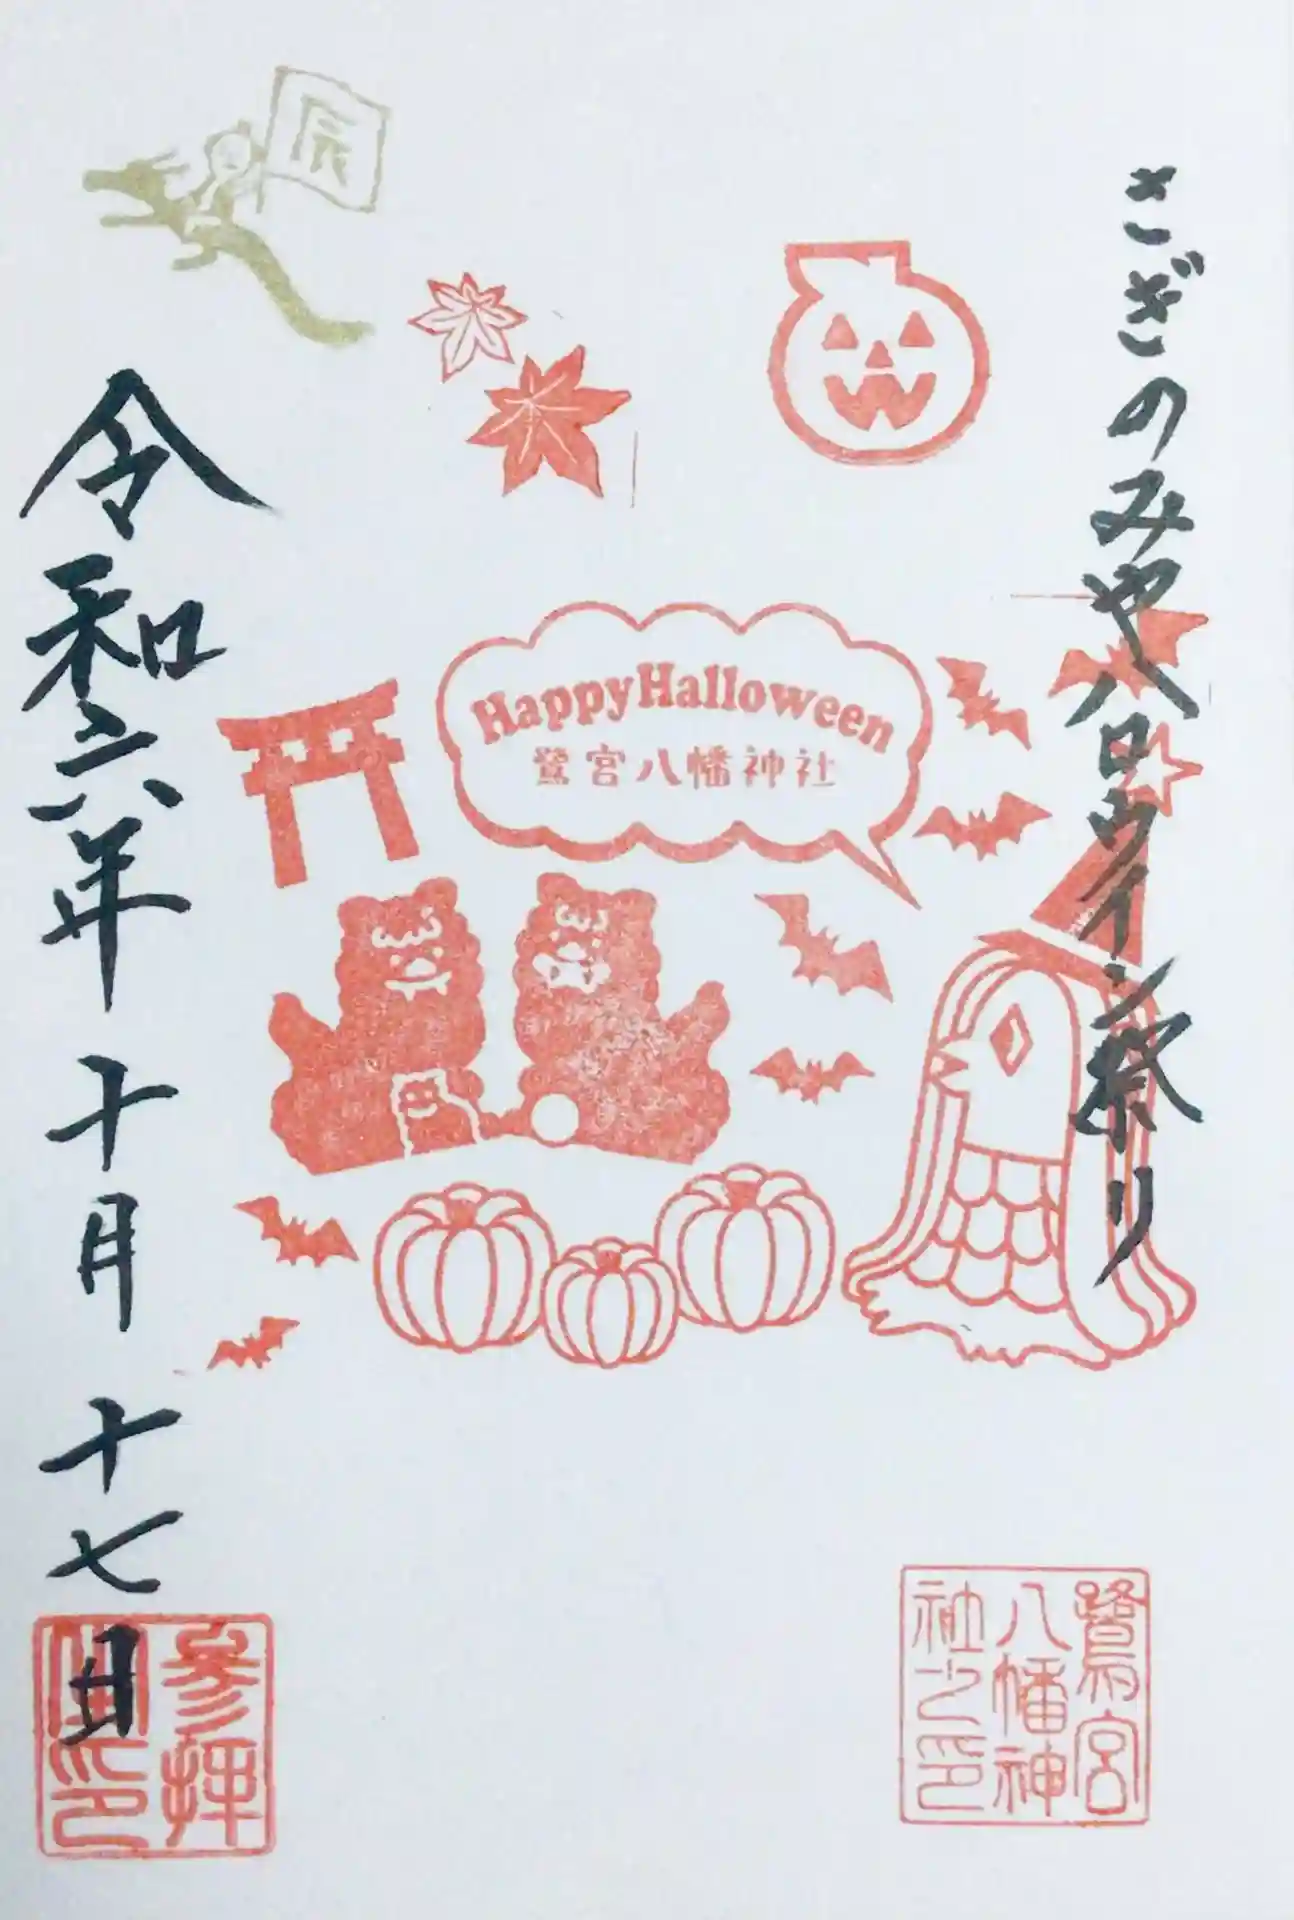 さぎのみやハロウィン祭り
HappyHalloween
鷺宮八幡神社
辰
令和六年十月十七日
鷺宮
八幡神
社之印
参拝